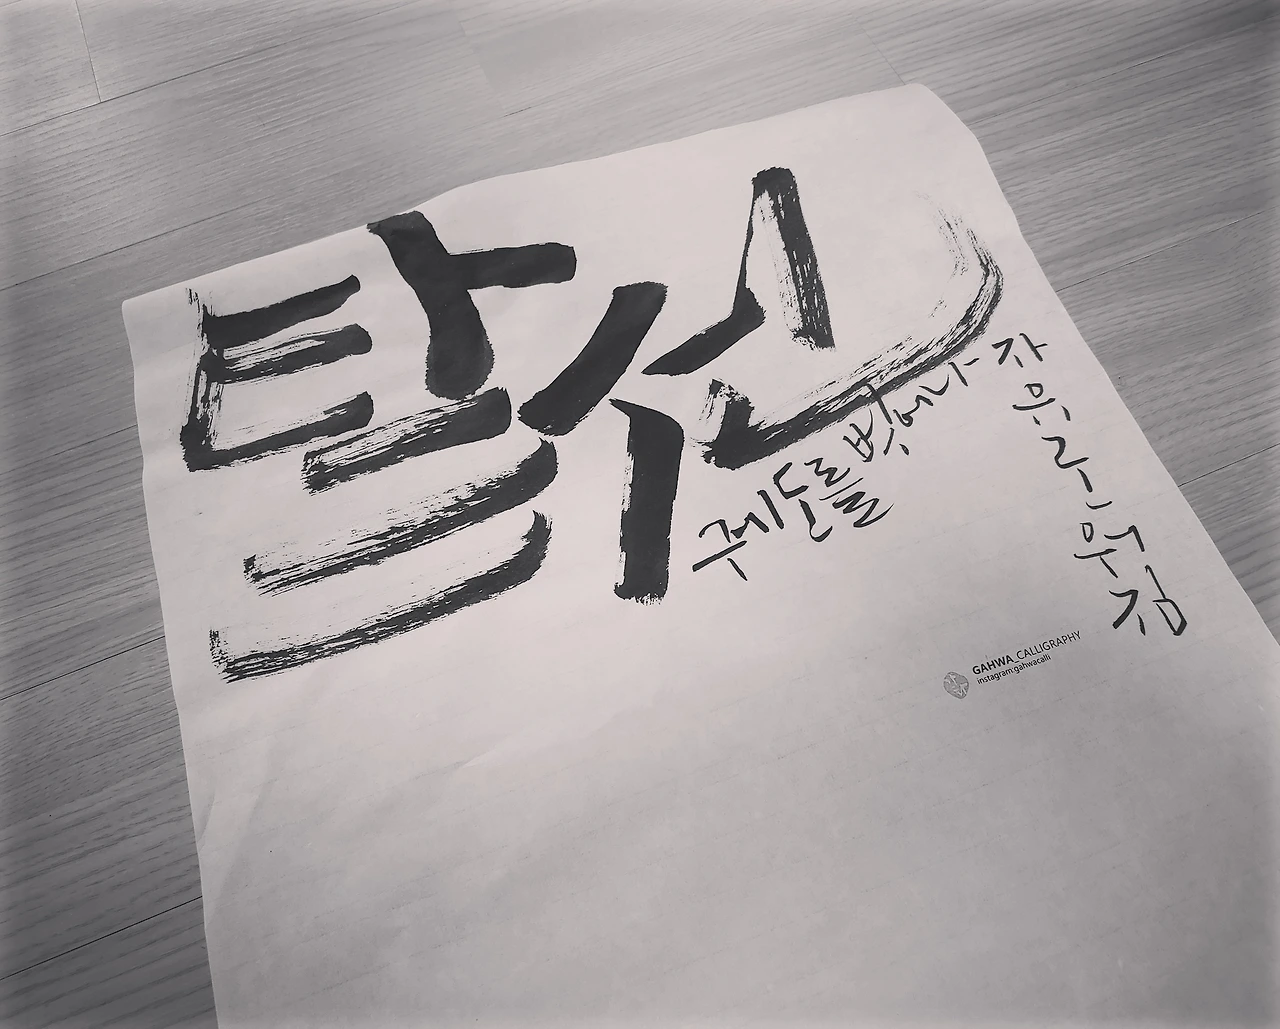 탈선
궤도를 벗어나
자유로워짐
GAHWA_CALLIGRAPHY
instagram gahwacalli